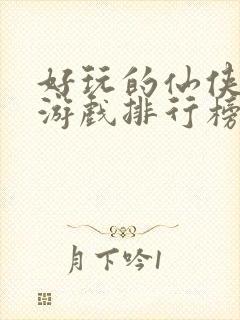 好玩的仙侠
游戏排行榜
月下吟1